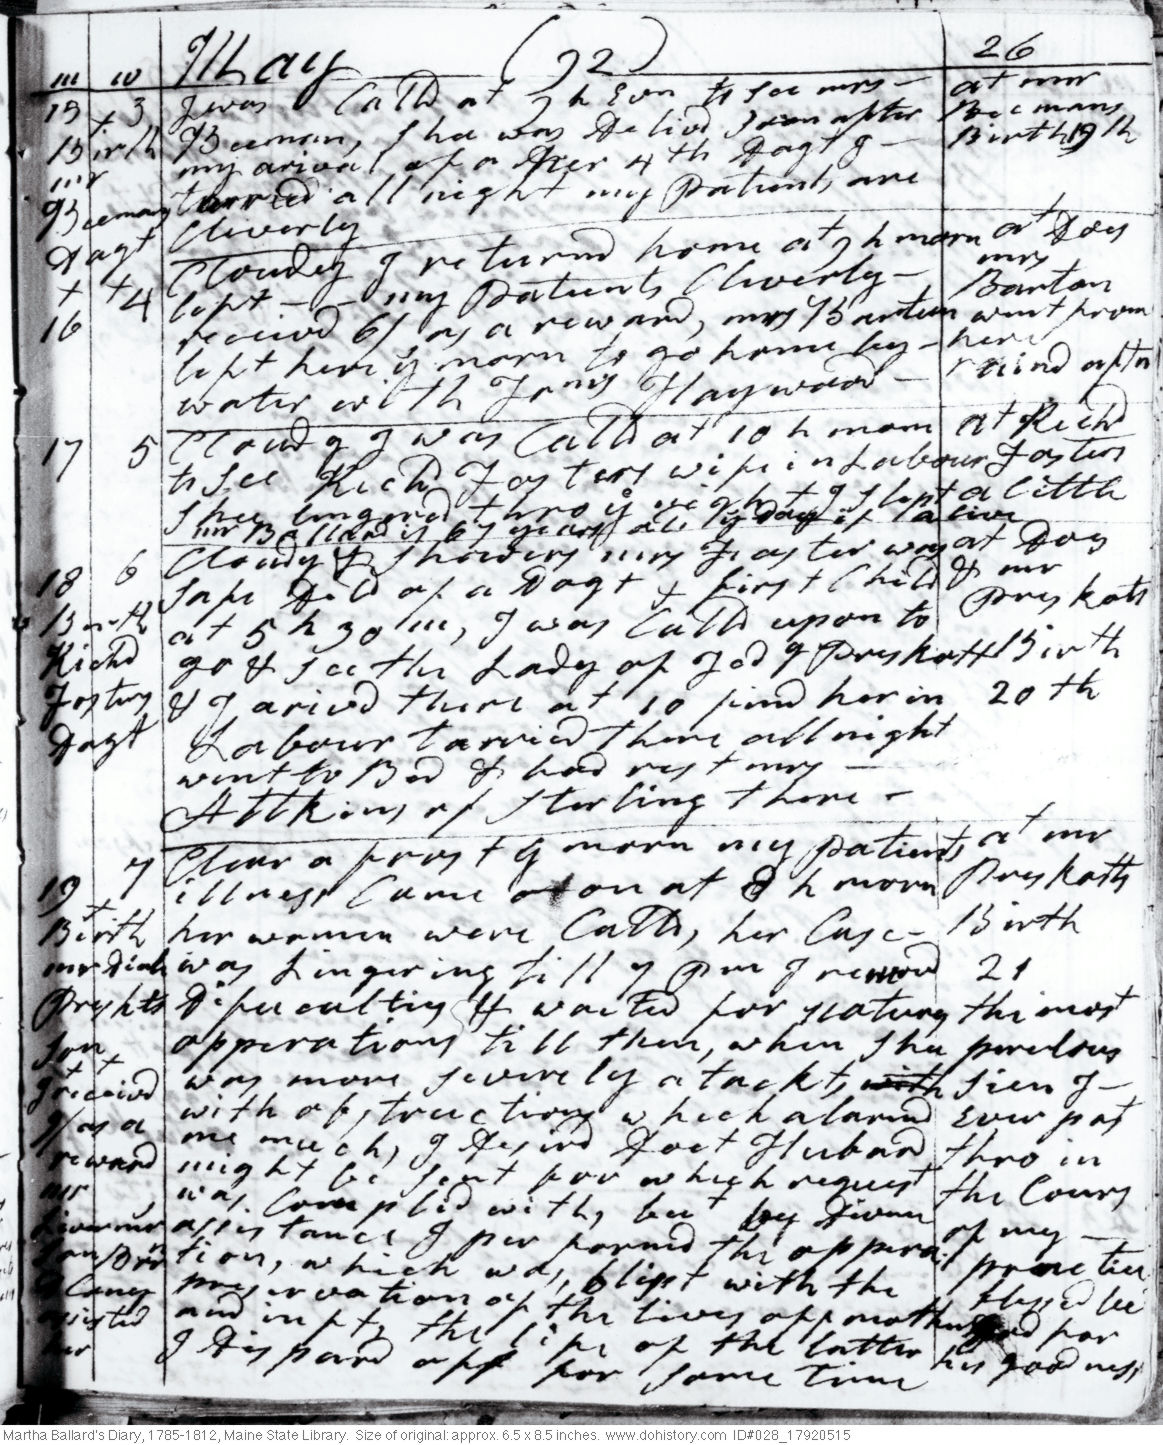 May (92) 26
m w
15 + 3 I was Calld at 7 h Evn to see mrs – at mr
Birth Beeman, shee was Delivd soon after Beemans
mr my arival of a Dagt 4th Dagt I – Birth 19th
Beemans tarried all night my Patients are
Dagt Cleverly
+ + 4 Cloudy I returnd home at 7 h morn at Doс
16 left – – my Patients Cleverly – mrs
receivd 6/ as a reward, mrs Barton Barton
left here y morn to go home by – went from
water with Jams Haywood – here
17 5 Cloudy I was Calld at 10 h morn at Richd
to see Richd Fosters wife in Labour Fosters
Shee lingerd thro ye night I slept a little
mr Ballard is 67 years old ys Day if alive
18 6 Cloudy & Showers mrs Foster was at Do &
Birth safe Deld of a Dagt & first Child & mr
Richd at 5 h 30 m, I was Calld upon to Preskots
Fosters go & see the Lady of Jedy Preskott Birth
Dagt & I arivd there at 10 find her in 20th
Labour tarried there all night
went to Bed & had rest mrs –
Attkins of Sterling there –
19 + 7 Clear a frost y morn my patients at mr
illness Came on at 8 h morn Preskotts
Birth her women were Calld, her Case – Birth
mr Jedh was Lingering till 7 pm I removd 21
Preskts Dificultys & waited for Natures the most
son + opperations till then, when shee perelous
I receivd was more severely atackt, with sien I –
9/ as a with obstructions which alarmd Ever past
reward me much, I Desird Doct Hubard thro in
mr might be sent for which request the Cours
was Complid with, but by Divine of my –
assistance I performd the oppera– practice
tion, which was blest with the blessed be
preservation of the lives of mother God for
asisted and inft, the life of the latter his goodness
her I Dispard off for some time
Martha Ballard's Diary, 1785-1812, Maine State Library. Size of original: approx. 6.5 x 8.5 inches. www.dohistory.com ID#028_17920515